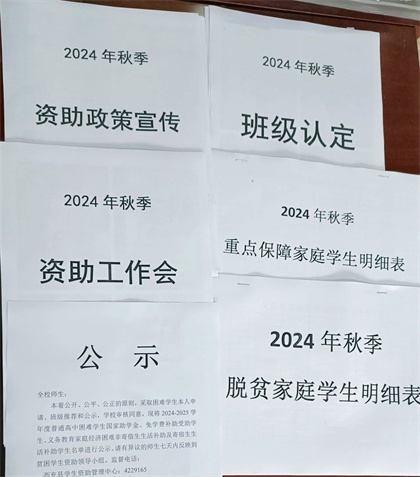 2024 年秋季
资助政策宣传
2024 年秋季
班级认定
2024 年秋季
资助工作会
2024 年秋季
重点保障家庭学生明细表
公 示
全校师生：
本着公开、公平、公正的原则，采取困难学生本人申
请，班级推荐和公示，学校审核同意，现将 2024-2025 学
年度普通高中困难学生国家助学金、免学费补助受助学
生、义务教育家庭经济困难非寄宿生生活补助及寄宿生生
活补助学生名单进行公示，请有异议的师生七天内反映到
贫困学生资助领导小组。监督电话：
西充县学生资助管理中心：4229165
2024 年秋季
脱贫家庭学生明细表